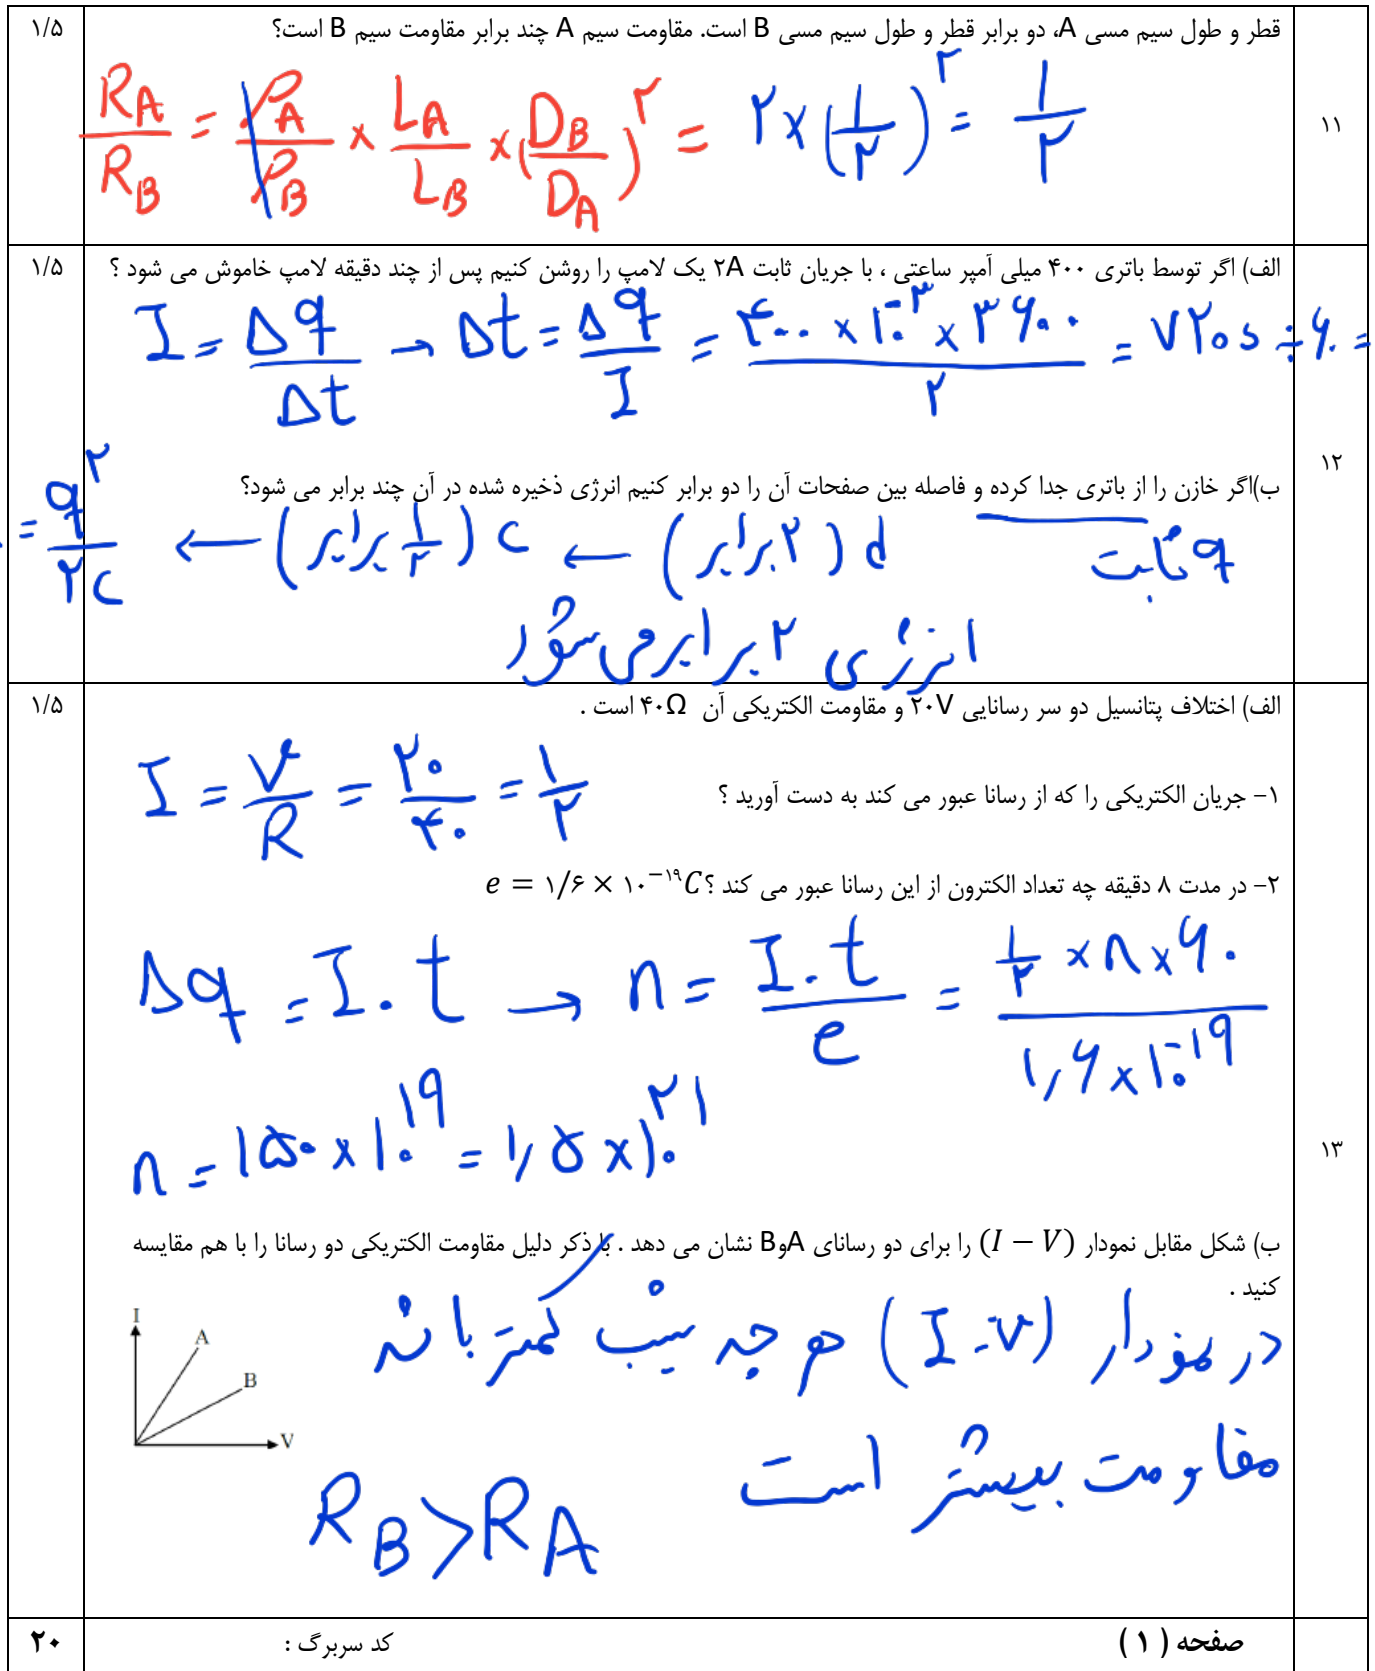 ۱۱ قطر و طول سیم مسی A، دو برابر قطر و طول سیم مسی B است. مقاومت سیم A چند برابر مقاومت سیم B است؟ ۱/۵
R_A/R_B = ρ_A/ρ_B × L_A/L_B × (D_B/D_A)^۲ = ۲ × (۱/۲)^۲ = ۱/۲
۱۲ الف) اگر توسط باتری ۴۰۰ میلی آمپر ساعتی ، با جریان ثابت ۲A یک لامپ را روشن کنیم پس از چند دقیقه لامپ خاموش می شود ؟ ۱/۵
I = Δq/Δt → Δt = Δq/I = ۴۰۰ × ۱۰^-۳ × ۳۶۰۰ / ۲ = ۷۲۰ s ÷ ۶۰ =
ب)اگر خازن را از باتری جدا کرده و فاصله بین صفحات آن را دو برابر کنیم انرژی ذخیره شده در آن چند برابر می شود؟
q ثابت
d (۲ برابر) ← C (۱/۲ برابر) ← = q^۲/۲C
انرژی ۲ برابر می شود
۱۳ الف) اختلاف پتانسیل دو سر رسانایی ۲۰V و مقاومت الکتریکی آن ۴۰Ω است . ۱/۵
۱- جریان الکتریکی را که از رسانا عبور می کند به دست آورید ؟
I = V/R = ۲۰/۴۰ = ۱/۲
۲- در مدت ۸ دقیقه چه تعداد الکترون از این رسانا عبور می کند ؟ e = ۱/۶ × ۱۰^-۱۹ C
Δq = I . t → n = I . t / e = ۱/۲ × ۸ × ۶۰ / ۱,۶ × ۱۰^-۱۹
n = ۱۵۰ × ۱۰^۱۹ = ۱,۵ × ۱۰^۲۱
ب) شکل مقابل نمودار (I − V) را برای دو رسانای AوB نشان می دهد . با ذکر دلیل مقاومت الکتریکی دو رسانا را با هم مقایسه
کنید .
I
A
B
V
در نمودار (I-V) هر چه شیب کمتر باشد
مقاومت بیشتر است
R_B > R_A
صفحه ( ۱ ) کد سربرگ : ۲۰